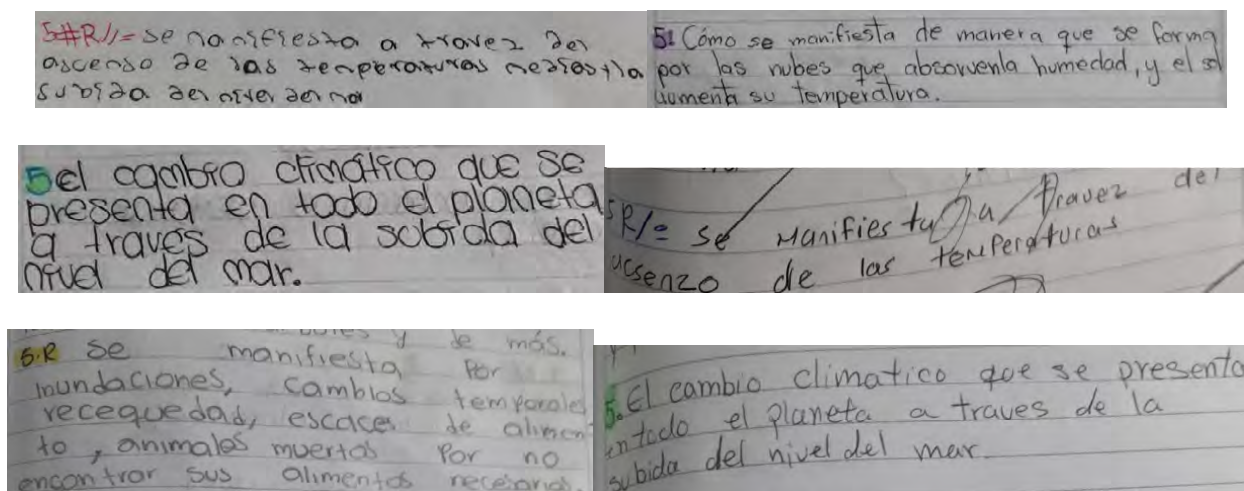 5#R//= se manifiesta a travez del
ascenso de las temperaturas medias y la
subida del nivel del mar
5! Cómo se manifiesta de manera que se forma
por las nubes que absorvenla humedad, y el sol
aumenta su temperatura.
5 el cambio climático que se
presenta en todo el planeta
a través de la subida del
nivel del mar.
5R/= se Manifiesta a travez del
acsenzo de las temperaturas
y de más.
5.R Se manifiesta Por
inundaciones, cambios temporales
recequedad, escaces de alimen
to, animales muertos Por no
encontrar sus alimentos necesarios.
5. El cambio climatico que se presenta
en todo el planeta a traves de la
subida del nivel del mar.